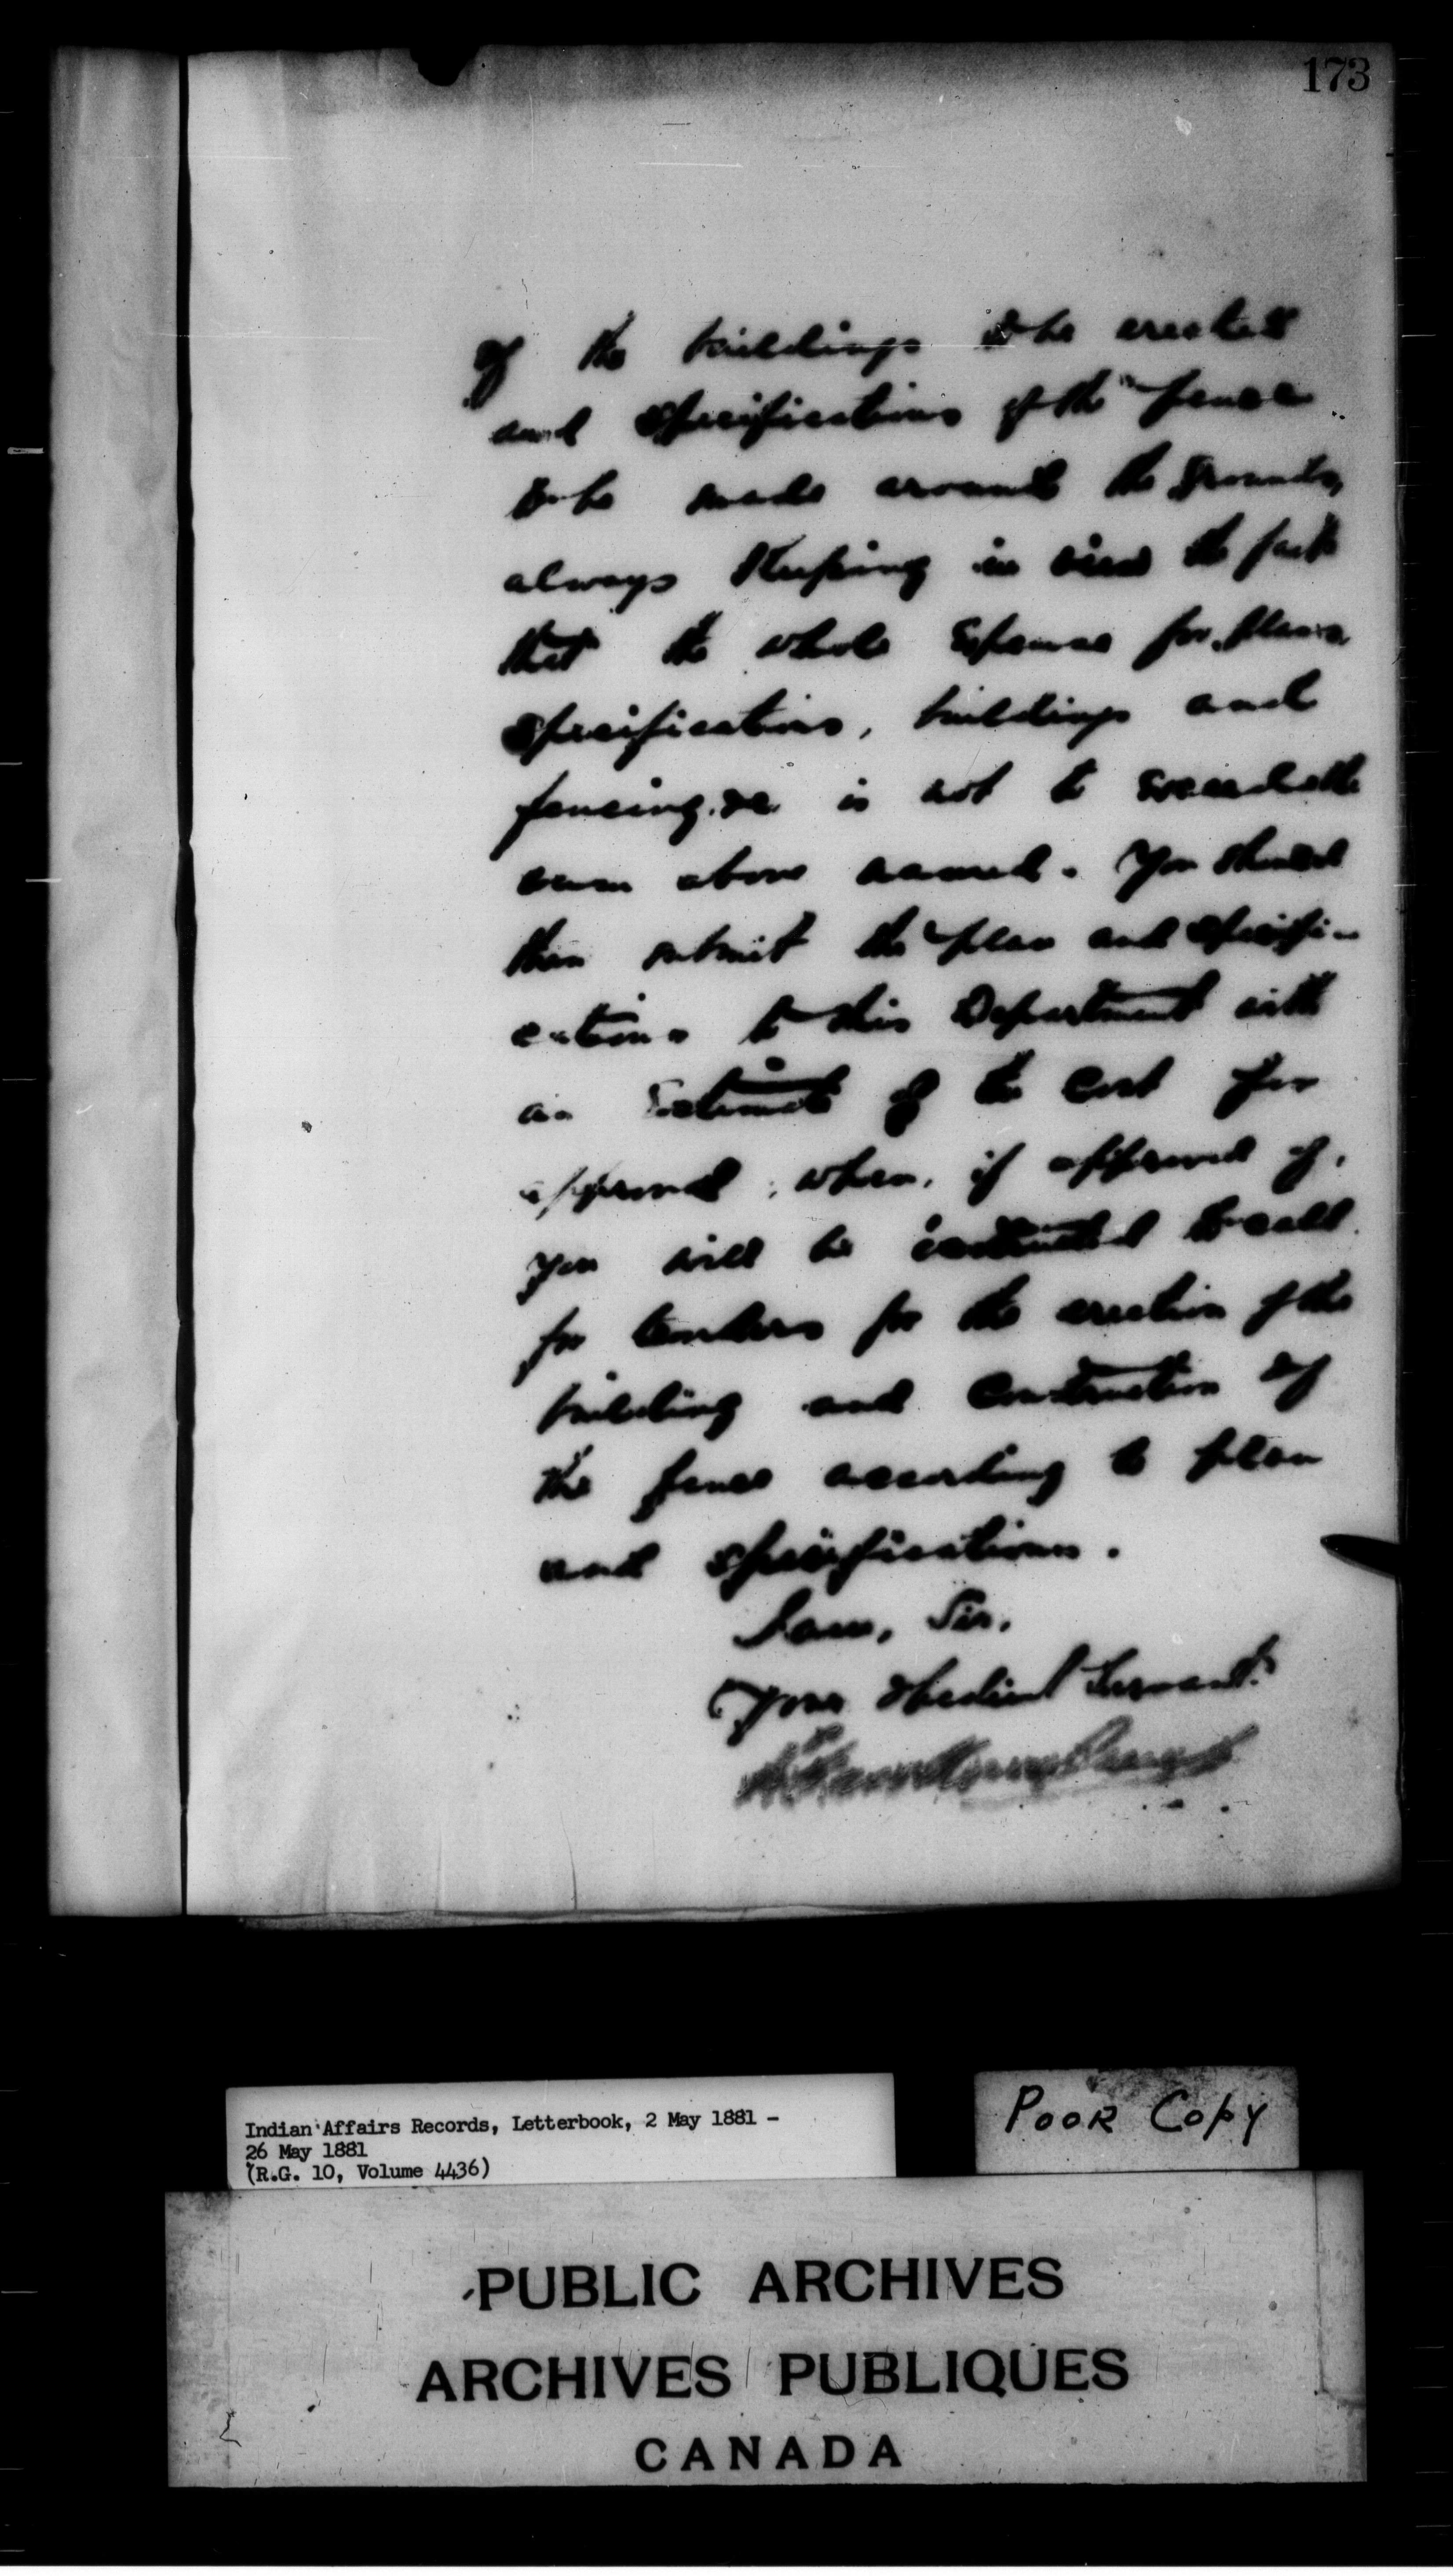 173
of the buildings to be erected
and specifications of the fence
to be made around the grounds,
always keeping in view the fact
that the whole expense for plans,
specifications, buildings and
fencing &c is not to exceed the
sum above named. You should
then submit the plan and specifi-
cations to this Department with
an Estimate of the Cost for
approval, when, if approved of,
you will be instructed to call
for tenders for the erection of the
building and Construction of
the fence according to plan
and specifications.
I am, Sir,
Your obedient Servant
Indian Affairs Records, Letterbook, 2 May 1881 -
26 May 1881
(R.G. 10, Volume 4436)
POOR COPY
PUBLIC ARCHIVES
ARCHIVES PUBLIQUES
CANADA